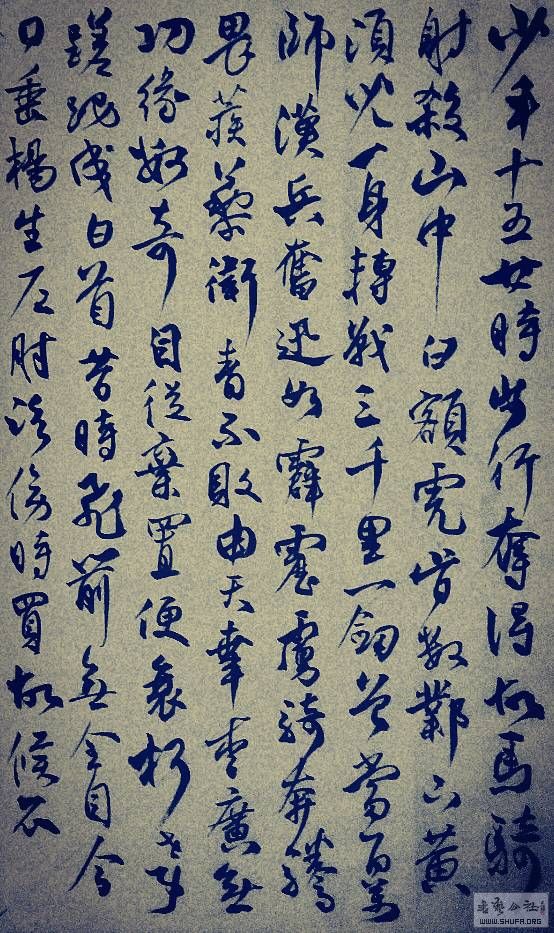 少年十五廿時步行奪得胡馬騎
射殺山中白額虎肯數鄴下黃
須兒一身轉戰三千里一劍曾當百萬
師漢兵奮迅如霹靂虜騎奔騰
畏蒺藜衛青不敗由天幸李廣無
功緣數奇自從棄置便衰朽世事
蹉跎成白首昔時飛箭無全目今
日垂楊生左肘路傍時買故候瓜
書藝公社
WWW.SHUFA.ORG